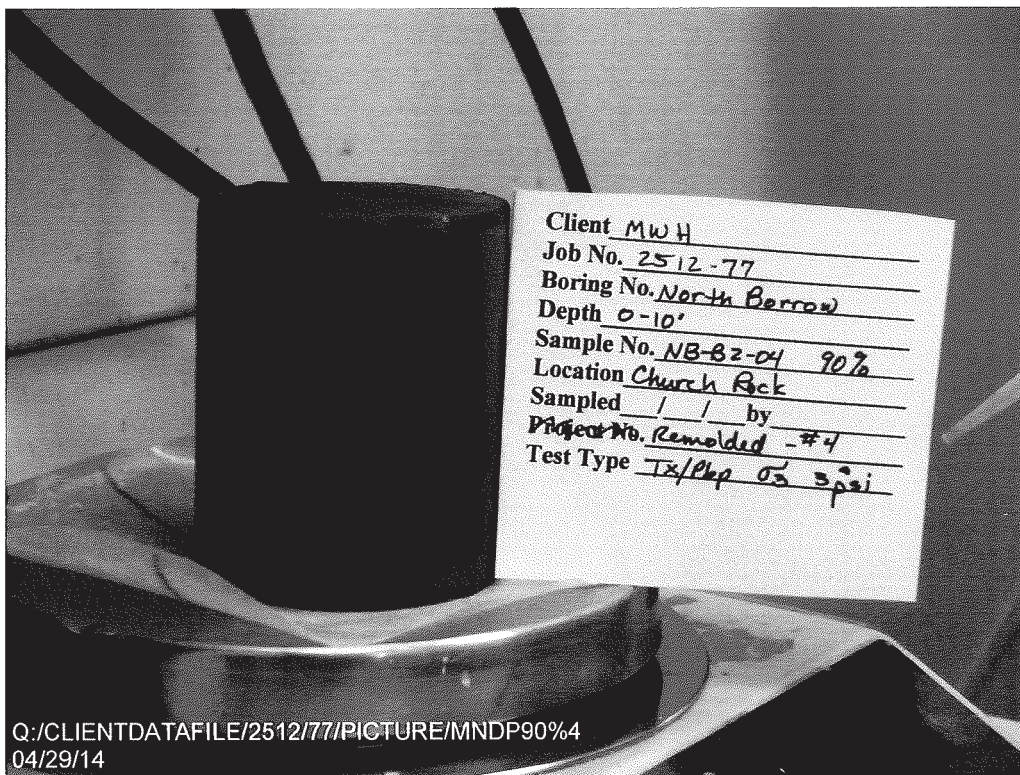 Client MWH
Job No. 2512-77
Boring No. North Borrow
Depth 0-10'
Sample No. NB-B2-04 90%
Location Church Rock
Sampled / / by
Project No. Remolded -#4
Test Type Tx/Pbp σ3 3psi
Q:/CLIENTDATAFILE/2512/77/PICTURE/MNDP90%4
04/29/14